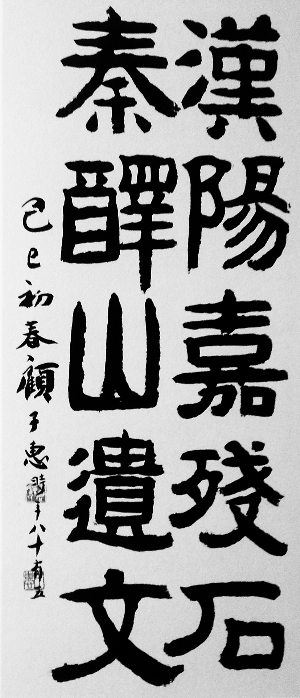 漢陽嘉殘石
秦醳山遺文
己巳初春顧子惠時年八十有五